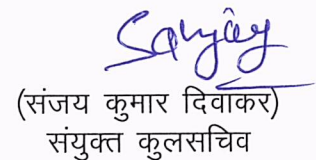 Sanjay
(संजय कुमार दिवाकर)
संयुक्त कुलसचिव